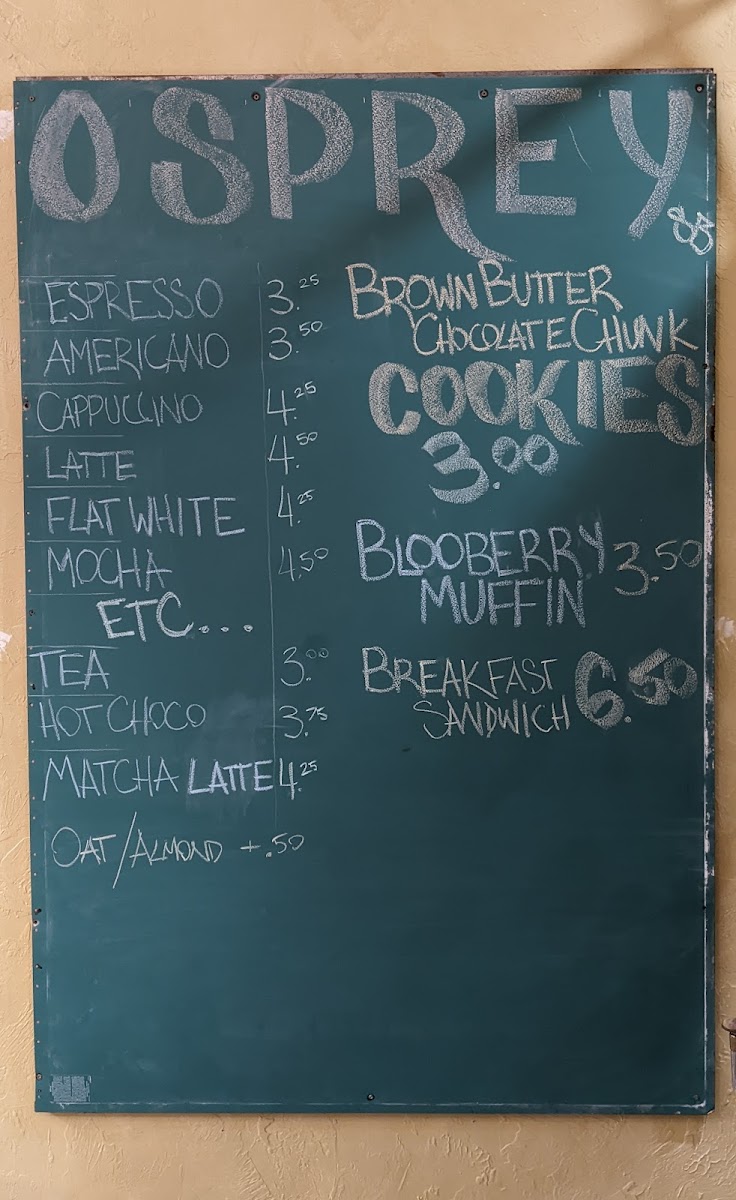 OSPREY
ESPRESSO 3.25
AMERICANO 3.50
CAPPUCCINO 4.25
LATTE 4.50
FLAT WHITE 4.25
MOCHA 4.50
ETC...
TEA 3.00
HOT CHOCO 3.75
MATCHA LATTE 4.25
OAT/ALMOND +.50
BROWN BUTTER
CHOCOLATE CHUNK
COOKIES
3.00
BLOOBERRY 3.50
MUFFIN
BREAKFAST 6.50
SANDWICH